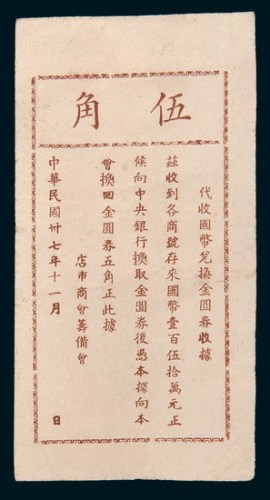 伍角
代收國幣兌換金圓券收據
茲收到各商號存來國幣壹百伍拾萬元正
候向中央銀行換取金圓券後憑本據向本
會換回金圓券五角正此據
店市商會籌備會
中華民國卅七年十一月　日